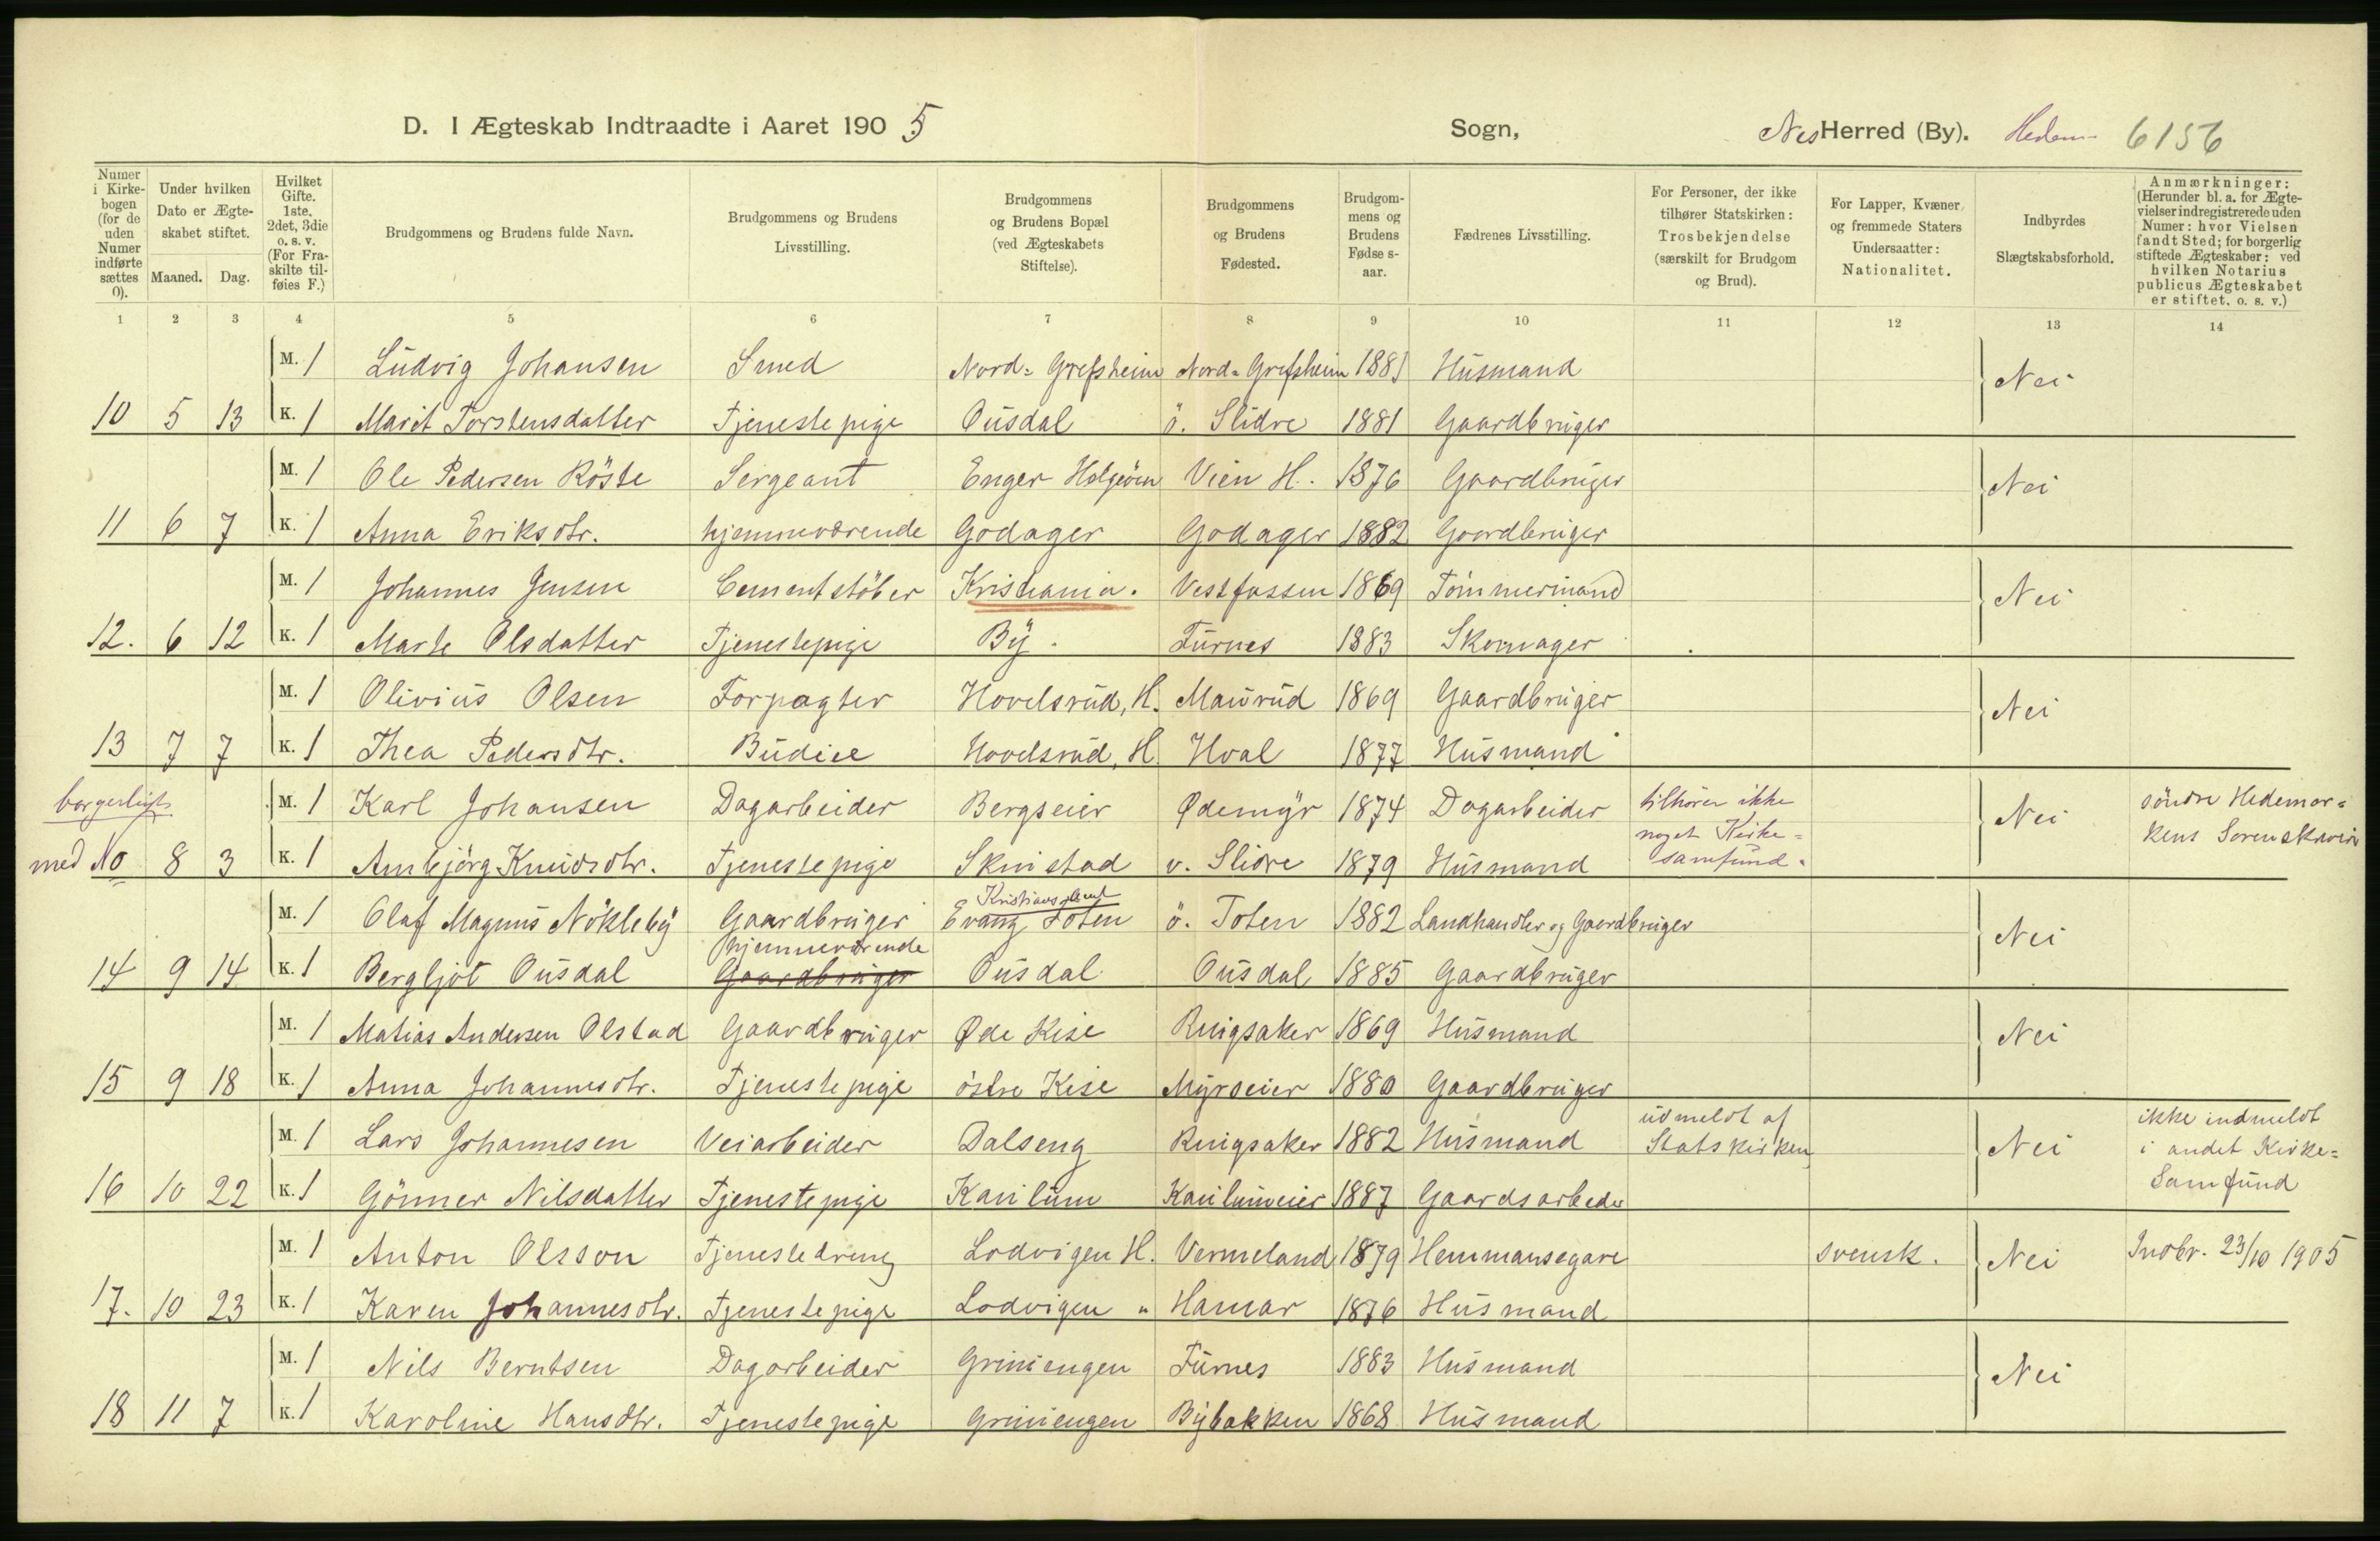 D. I Ægteskab Indtraadte i Aaret 1905 Sogn, Nes Herred (By). Hedem. 6156
Numer i Kirkebogen (for de uden Numer indførte sættes 0).
Under hvilken Dato er Ægteskabet stiftet.
Maaned. Dag.
Hvilket Gifte. 1ste, 2det, 3die o. s. v. (For Fraskilte tilføies F.)
Brudgommens og Brudens fulde Navn.
Brudgommens og Brudens Livsstilling.
Brudgommens og Brudens Bopæl (ved Ægteskabets Stiftelse).
Brudgommens og Brudens Fødested.
Brudgommens og Brudens Fødselsaar.
Fædrenes Livsstilling.
For Personer, der ikke tilhører Statskirken: Trosbekjendelse (særskilt for Brudgom og Brud).
For Lapper, Kvæner og fremmede Staters Undersaatter: Nationalitet.
Indbyrdes Slægtskabsforhold.
Anmærkninger: (Herunder bl. a. for Ægtevielser indregistrerede uden Numer: hvor Vielsen fandt Sted; for borgerlig stiftede Ægteskaber: ved hvilken Notarius publicus Ægteskabet er stiftet, o. s. v.)
1 2 3 4 5 6 7 8 9 10 11 12 13 14
M. 1 Ludvig Johansen Smed Nord=Grefsheim Nord=Grefsheim 1881 Husmand Nei
10 5 13 K. 1 Marit Torstensdatter Tjenestepige Ousdal ö. Slidre 1881 Gaardbruger
M. 1 Ole Pedersen Röste Sergeant Enger Helgöen Vien H. 1876 Gaardbruger Nei
11 6 7 K. 1 Anna Eriksdtr. hjemmeværende Godager Godager 1882 Gaardbruger
M. 1 Johannes Jensen Cementstöber Kristiania. Vestfossen 1869 Tömmermand Nei
12. 6 12 K. 1 Marte Olsdatter Tjenestepige By. Furnes 1883 Skomager
M. 1 Olivius Olsen Forpagter Hovelsrud, H. Maurud 1869 Gaardbruger Nei
13 7 7 K. 1 Thea Pedersdtr. Budeie Hovelsrud, H. Hval 1877 Husmand
borgerligt M. 1 Karl Johansen Dagarbeider Bergseier Ødemyr 1874 Dagarbeider tilhörer ikke Nei söndre Hedemar=
noget Kirke=
med No 8 3 K. 1 Ambjörg Knudsdtr. Tjenestepige Skuistad v. Slidre 1879 Husmand samfund. kens Sorenskriver
Kristians Amt
M. 1 Olaf Magnus Nökleby Gaardbruger Evang Toten ö. Toten 1882 Landhandler og Gaardbruger Nei
hjemmeværende
14 9 14 K. 1 Bergljot Ousdal Gaardbruger Ousdal Ousdal 1885 Gaardbruger
M. 1 Matias Andersen Olstad Gaardbruger Øde Kise Ringsaker 1869 Husmand Nei
15 9 18 K. 1 Anna Johannesdtr. Tjenestepige östre Kise Myrseier 1880 Gaardbruger
udmeldt af ikke indmeldt
M. 1 Lars Johannesen Veiarbeider Dalseng Ringsaker 1882 Husmand Statskirken Nei i andet Kirke=
16 10 22 K. 1 Gönner Nilsdatter Tjenestepige Kavlum Kavlumeier 1887 Gaardsarbeder Samfund
M. 1 Anton Olsson Tjenestedreng Lodvigen H. Vermeland 1879 Hemmansegare svensk. Nei Indbr. 23/10 1905
17. 10 23 K. 1 Karen Johannesdtr. Tjenestepige Lodvigen " Hamar 1876 Husmand
M. 1 Nils Berntsen Dagarbeider Griniengen Furnes 1883 Husmand Nei
18 11 7 K. 1 Karoline Hansdtr. Tjenestepige Griniengen Bybakken 1868 Husmand